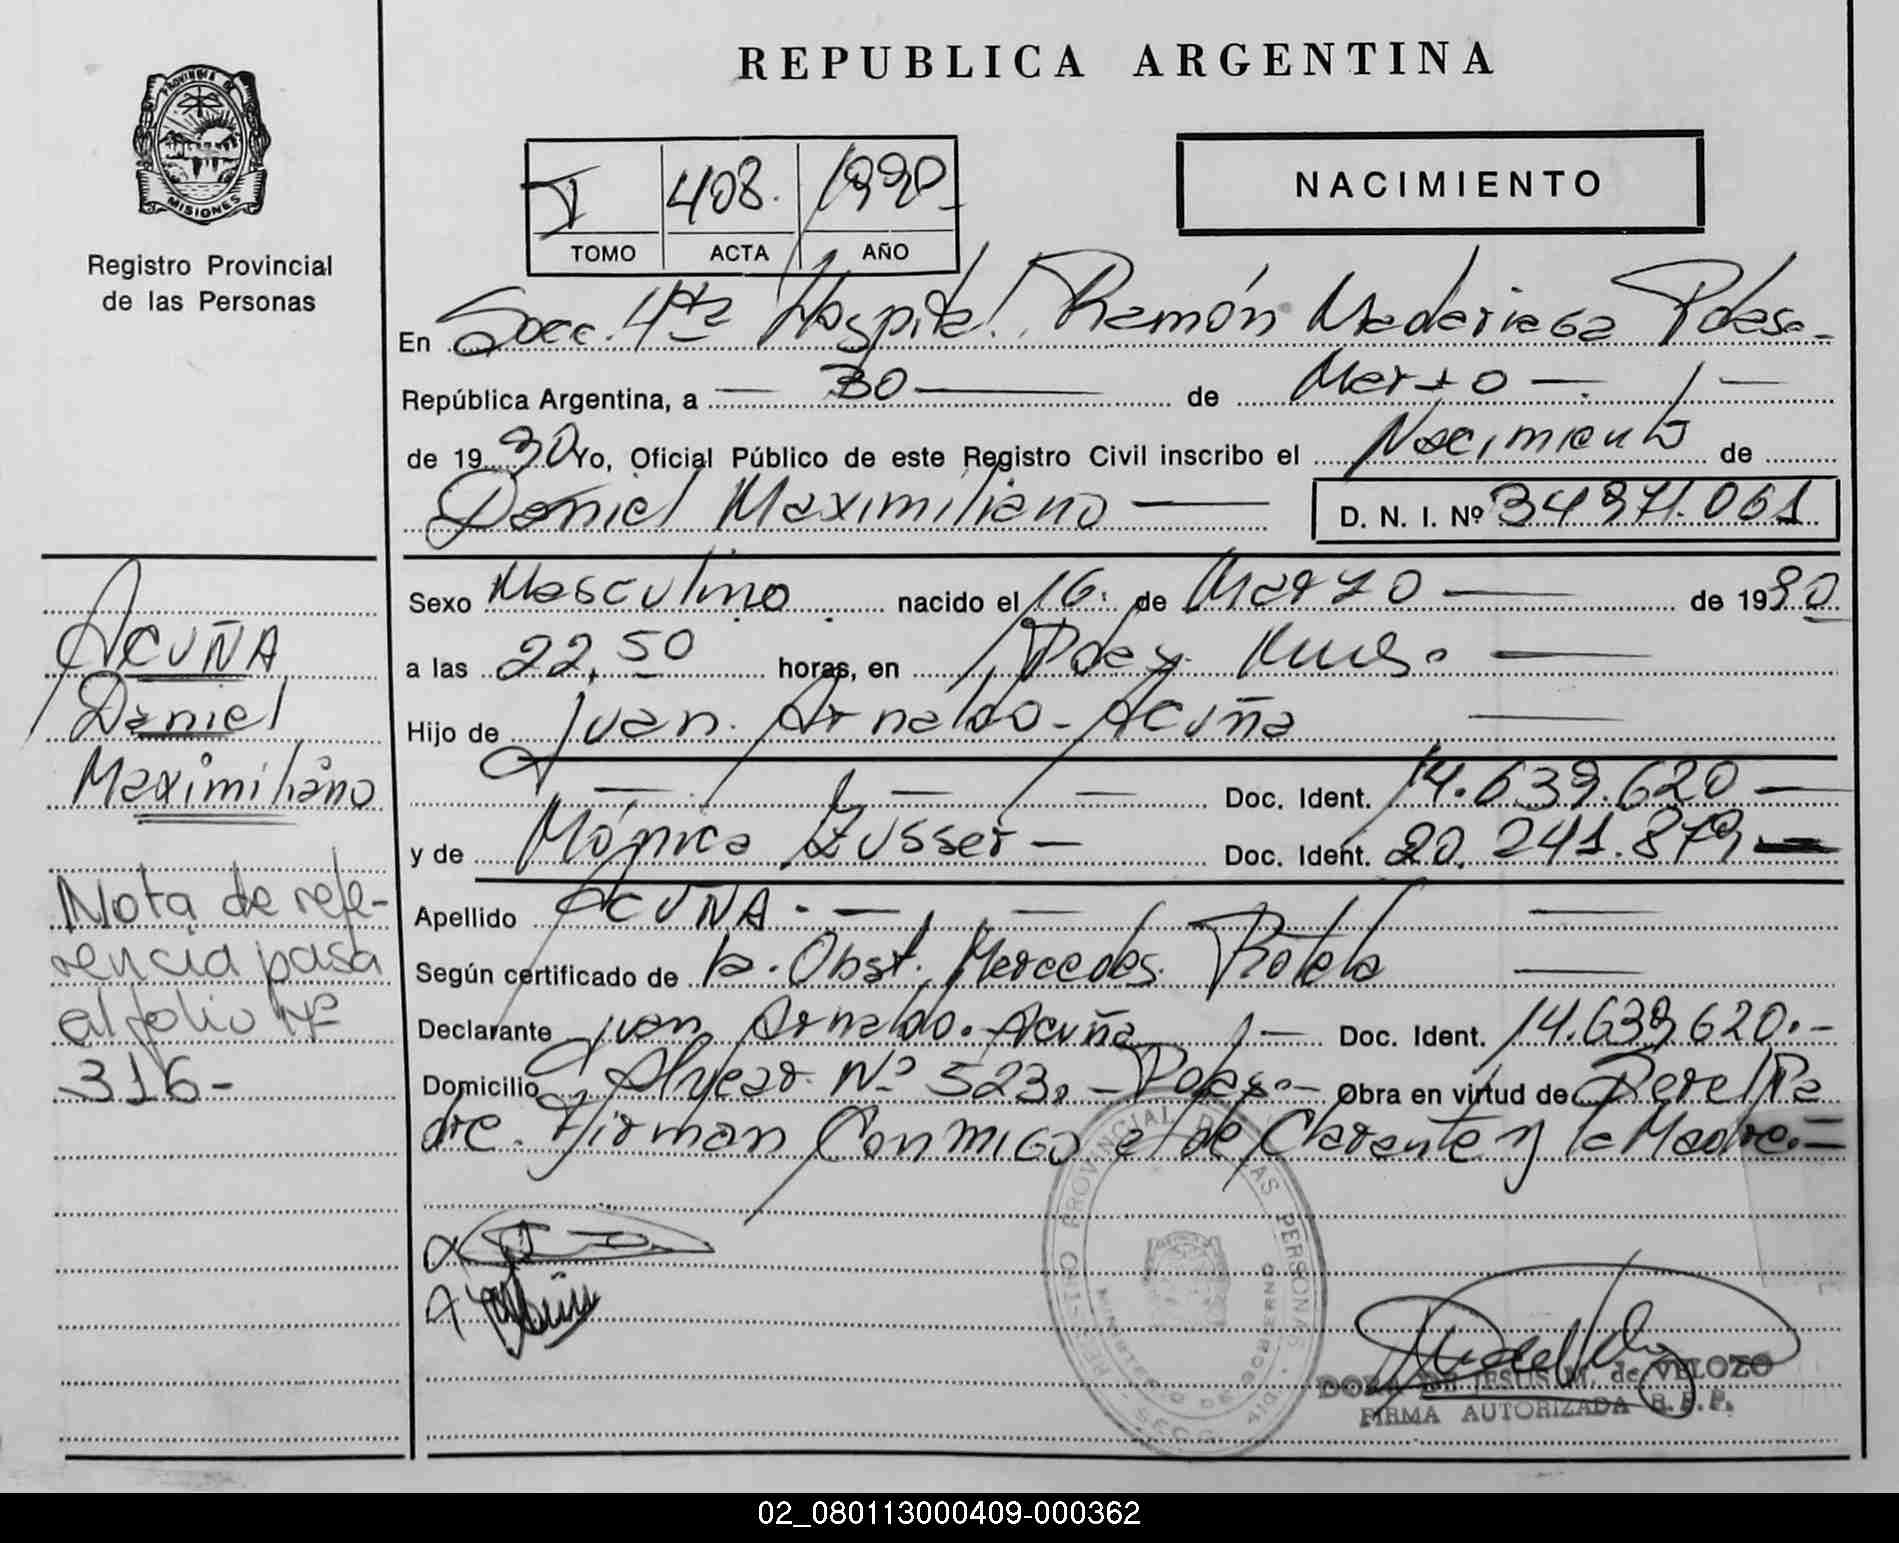 REPUBLICA ARGENTINA
PROVINCIA DE
MISIONES
Registro Provincial
de las Personas
I 408. 1990
TOMO ACTA AÑO
NACIMIENTO
En Secc. 4ta Hospital Ramón Madariaga Pdas.
República Argentina, a 30 de Marzo
de 1990 Yo, Oficial Público de este Registro Civil inscribo el Nacimiento de
Daniel Maximiliano D. N. I. Nº 34971.061
Sexo Masculino nacido el 16. de Marzo de 1990
a las 22,50 horas, en Pdas.
Hijo de Juan Arnaldo Acuña
Doc. Ident. 14.639.620
y de Mónica Zusser Doc. Ident. 20.241.879
Apellido ACUÑA
Según certificado de la Obst. Mercedes Rotela
Declarante Juan Arnaldo Acuña Doc. Ident. 14.639.620.
Domicilio Alvear Nº 523, Pdas. Obra en virtud de ser el Pa
dre. Firman Conmigo el declarante y la Madre.
ACUÑA
Daniel
Maximiliano
Nota de refe-
rencia pasa
al folio Nº
316-
REGISTRO PROVINCIAL DE LAS PERSONAS
MINISTERIO DE GOBIERNO
DORA DE JESUS M. de VELOZO
FIRMA AUTORIZADA R.P.P.
02_080113000409-000362